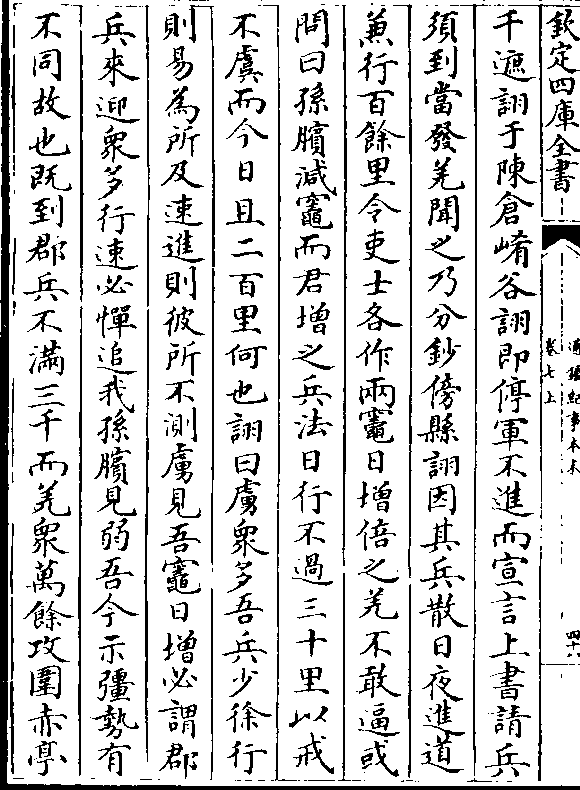 欽定四庫全書
通鑑紀事本末
卷七上
四十八
千遮詡于陳倉崤谷詡即停軍不進而宣言上書請兵
須到當發羌聞之乃分鈔傍縣詡因其兵散日夜進道
兼行百餘里令吏士各作兩竈日增倍之羌不敢逼或
問曰孫臏減竈而君増之兵法日行不過三十里以戒
不虞而今日且二百里何也詡曰虜衆多吾兵少徐行
則易為所及速進則彼所不測虜見吾竈日増必謂郡
兵來迎衆多行速必憚追我孫臏見弱吾今示彊勢有
不同故也既到郡兵不滿三千而羌衆萬餘攻圍赤亭